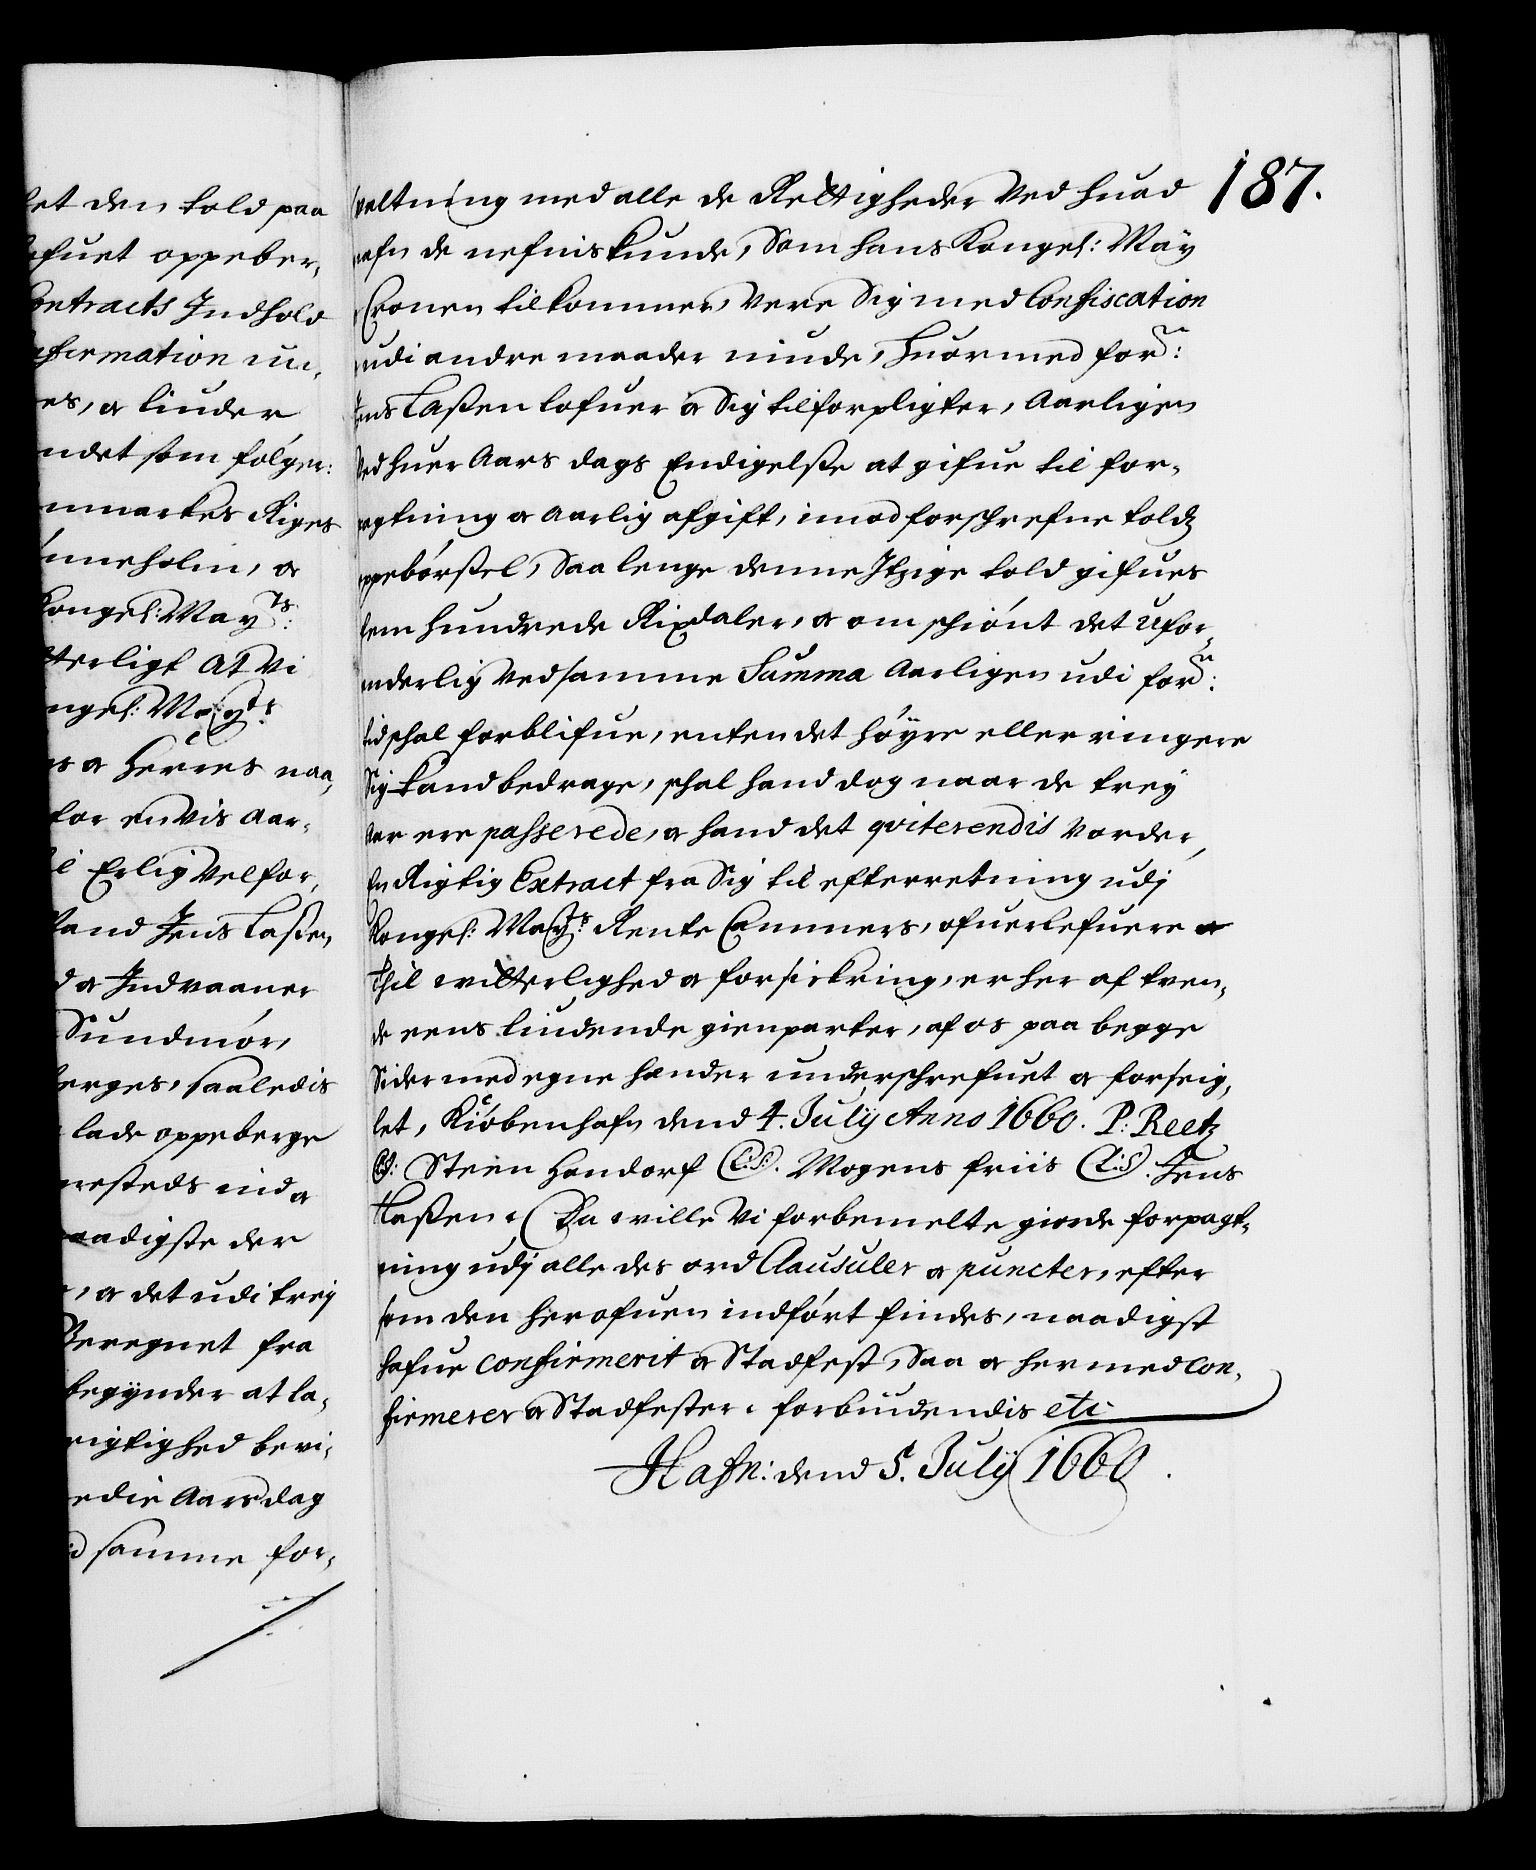 187.
let den told paa
fuet oppeber,
Contracts Indhold
nfirmation un,
es, oc liuder
ndet som følger:
nmarkes Riges
inneholm, oc
Kongel: Mayts:
tterligt At Vi
ngel: Mayts
s oc Herres naa,
for en vis Aar,
il Erlig Velfor,
tand Jens Laßen,
d oc Indvaaner
Sundmør,
berges, saaledis
lade oppeberge
aadigste der
, oc det udi trej
Beregnet fra
begynder at la,
rigtighed bevi,
edie Aarsdag
d samme for,
valtning med alle de Rettigheder Ved huad
nafn de nefnis kunde, Som hans Kongel: May
Cronen tilkommer, Vere Sig med Confiscation
udi andre maader minde, huormed forn:
Jens Laßen lofuer oc Sig tilforpligter, Aarligen
Ved huer Aars dags Endigelße at gifue til for,
pagtning oc Aarlig afgift, imod forschrefne toldz
oppebørßel, Saa lenge denne Itzige told gifues
fem hundrede Rixdaler, oc om schiønt det ufor,
anderlig Ved samme Summa Aarligen udi forn:
tid schal forblifue, enten det høyre eller ringere
Sig kand bedrage, schal hand dog naar de trey
Aar ere passerede, oc hand det qviterendis Vorder,
En Rigtig Extract fra Sig til efterretning udj
Kongel: Mayts Rente Cammers, ofuerlefuere oc
Thil witterlighed oc forsickring, er her af tven,
de eens liudende gienparter, af os paa begge
Sider med egne hænder underschrefuet oc forseig,
let, Kiøbenhafn dend 4. Julij Anno 1660. P: Reetz
Steen Hondorf (L.S). Mogens friis (L:S). Jens
Laßen. Da wille Vi forbemelte giorde forpagt,
ning udj alle des ord Clausuler oc puncter, efter
som den her ofuen indført findes, naadigst
hafue confirmerit oc Stadfest, Saa oc her med con,
firmerer oc Stadfester. forbiudendis etc
Hafn: dend 5. Julij 1660.